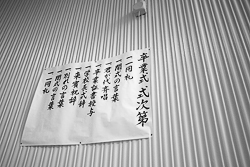 卒業式式次第
一 一同礼
一 開式の言葉
一 君が代斉唱
一 卒業証書授与
一 学校長式辞
一 来賓祝辞
一 別れの言葉
一 閉式の言葉
一 一同礼